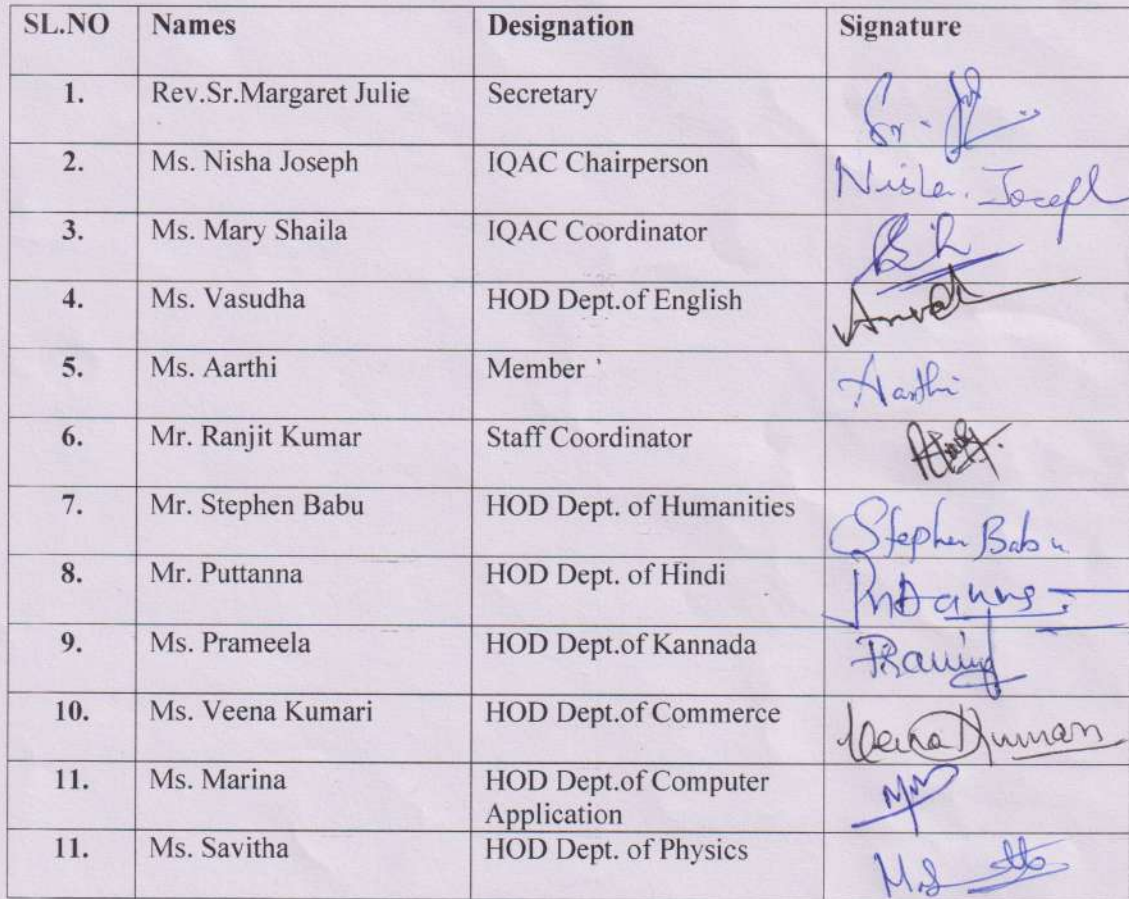 SL.NO Names Designation Signature
1. Rev.Sr.Margaret Julie Secretary
2. Ms. Nisha Joseph IQAC Chairperson Nisha. Joseph
3. Ms. Mary Shaila IQAC Coordinator
4. Ms. Vasudha HOD Dept.of English
5. Ms. Aarthi Member Aarthi
6. Mr. Ranjit Kumar Staff Coordinator
7. Mr. Stephen Babu HOD Dept. of Humanities Stephen Babu
8. Mr. Puttanna HOD Dept. of Hindi
9. Ms. Prameela HOD Dept.of Kannada
10. Ms. Veena Kumari HOD Dept.of Commerce Veena Kumari
11. Ms. Marina HOD Dept.of Computer
Application
11. Ms. Savitha HOD Dept. of Physics